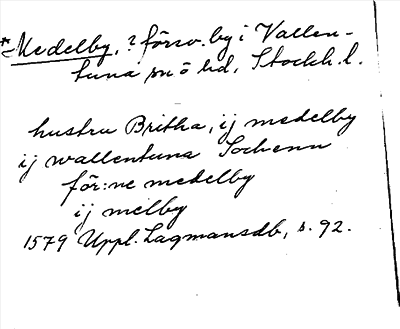 *Medelby, ? försv. by i Vallen-
tuna sn ö hd, Stockh. l.
hustru Britha, ij medelby
ij wallentuna Sochenn
för:ne medelby
ij melby
1579 Uppl. Lagmansdb, s. 92.